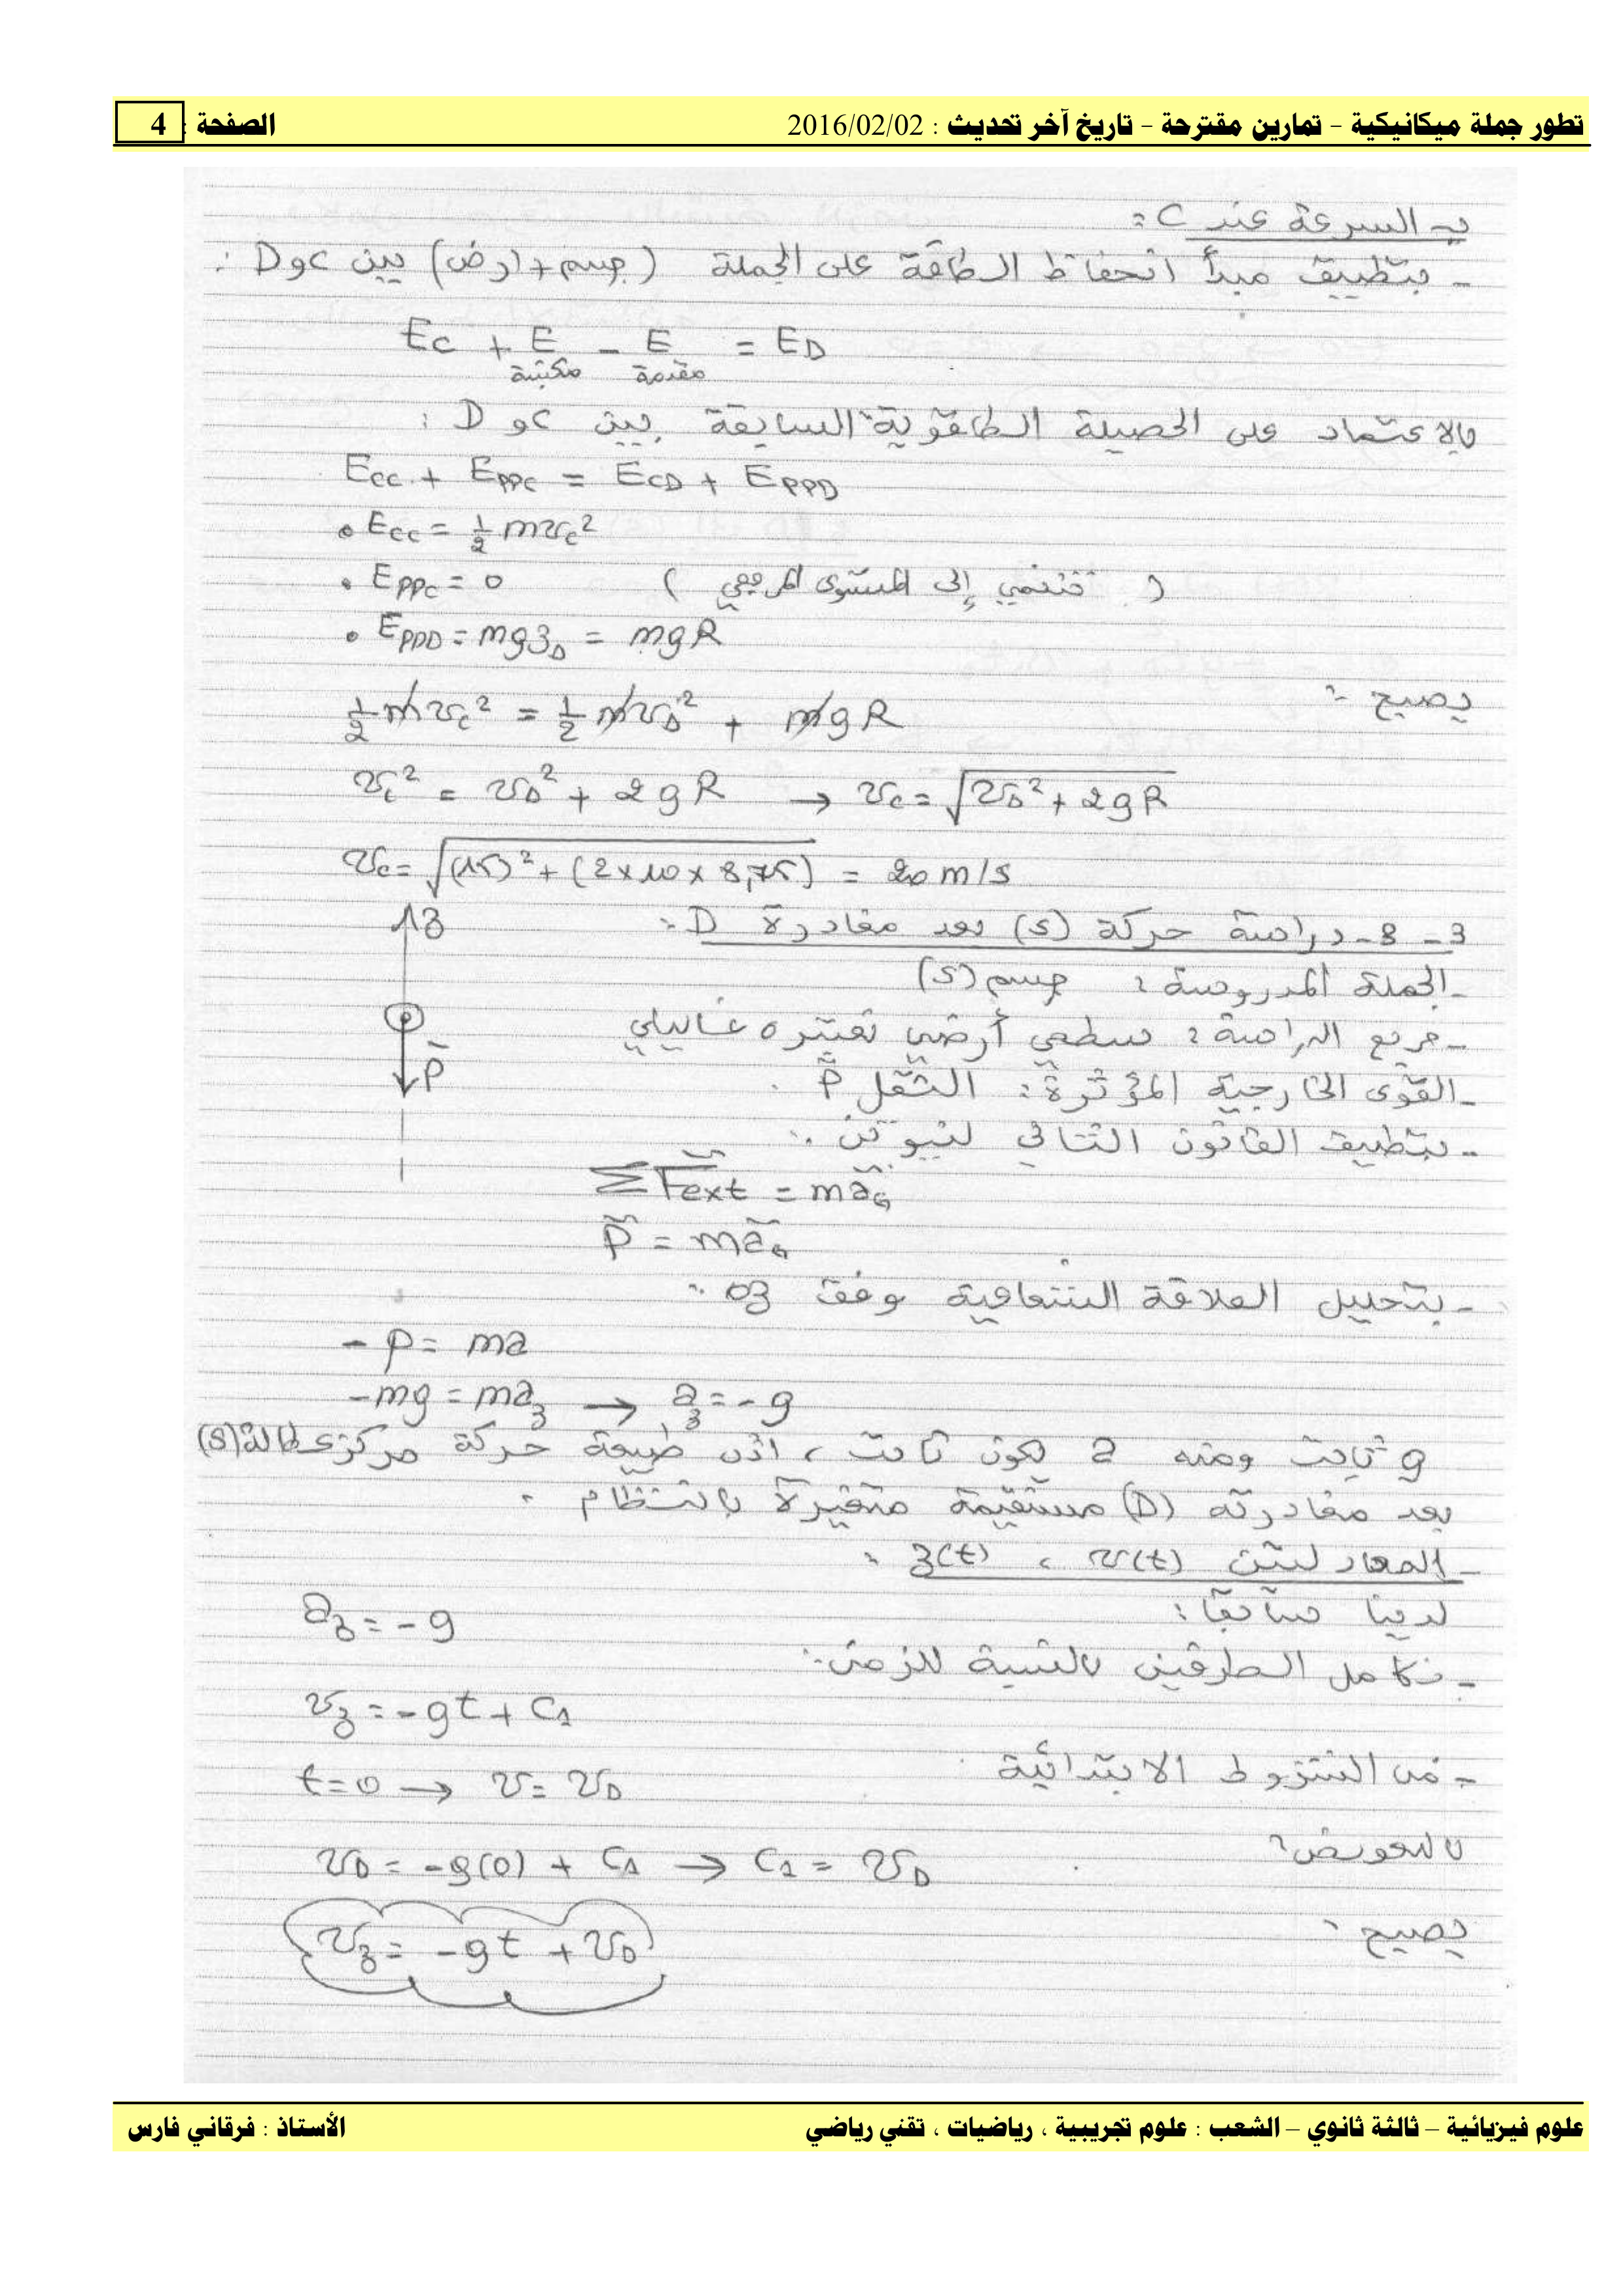 تطور جملة ميكانيكية - تمارين مقترحة - تاريخ آخر تحديث : 2016/02/02 الصفحة : 4
ب- السرعة عند C :
- بتطبيق مبدأ انحفاظ الطاقة على الجملة (جسم + أرض) بين C و D :
Ec + E مكتسبة - E مقدمة = ED
بالاعتماد على الحصيلة الطاقوية السابقة بين C و D :
Ecc + Eppc = EcD + EppD
• Ecc = 1/2 m vc²
• Eppc = 0 ( تنتمي إلى المستوى المرجعي )
• EppD = mgzD = mgR
يصبح :
1/2 m vc² = 1/2 m vD² + mgR
vc² = vD² + 2gR → vc = √(vD² + 2gR)
vc = √((15)² + (2×10×8,75)) = 20 m/s
3 - 8 - دراسة حركة (S) بعد مغادرة D :
z
- الجملة المدروسة : جسم (S)
- مرجع الدراسة : سطحي أرضي نعتبره غاليلي
P
- القوى الخارجية المؤثرة : الثقل P
- بتطبيق القانون الثاني لنيوتن :
ΣFext = maG
P = maG
- بتحليل العلاقة الشعاعية وفق oz :
- P = ma
- mg = maz → az = - g
g ثابت ومنه a يكون ثابت ، اذن طبيعة حركة مركز عطالة (S)
بعد مغادرته (D) مستقيمة متغيرة بانتظام .
- المعادلتين v(t) ، z(t) :
لدينا سابقا :
az = - g
- نكامل الطرفين بالنسبة للزمن :
vz = - gt + C1
- من الشروط الابتدائية
t = 0 → v = vD
بالتعويض :
vD = - g(0) + C1 → C1 = vD
يصبح :
vz = - gt + vD
علوم فيزيائية – ثالثة ثانوي – الشعب : علوم تجريبية ، رياضيات ، تقني رياضي الأستاذ : فرقاني فارس